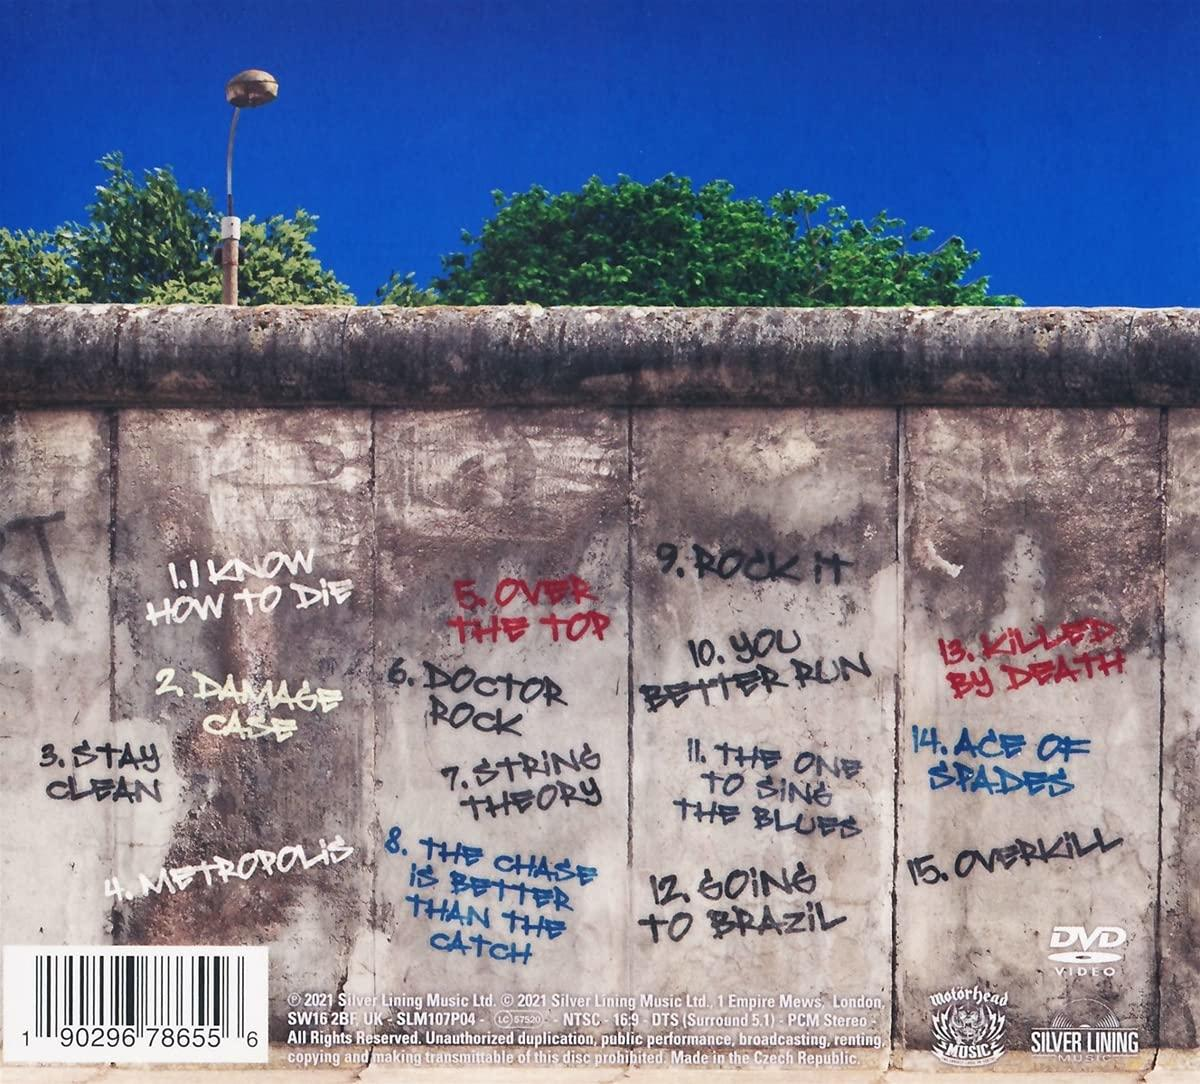 1. I KNOW
HOW TO DIE
2. DAMAGE
CASE
3. STAY
CLEAN
4. METROPOLIS
5. OVER
THE TOP
6. DOCTOR
ROCK
7. STRING
THEORY
8. THE CHASE
IS BETTER
THAN THE
CATCH
9. ROCK IT
10. YOU
BETTER RUN
11. THE ONE
TO SING
THE BLUES
12. GOING
TO BRAZIL
13. KILLED
BY DEATH
14. ACE OF
SPADES
15. OVERKILL
1 90296 78655 6
℗ 2021 Silver Lining Music Ltd. © 2021 Silver Lining Music Ltd., 1 Empire Mews, London,
SW16 2BF, UK - SLM107P04 - LC 57520 - NTSC - 16:9 - DTS (Surround 5.1) - PCM Stereo -
All Rights Reserved. Unauthorized duplication, public performance, broadcasting, renting,
copying and making transmittable of this disc prohibited. Made in the Czech Republic.
DVD
VIDEO
Motörhead
MUSIC
SILVER LINING
MUSIC